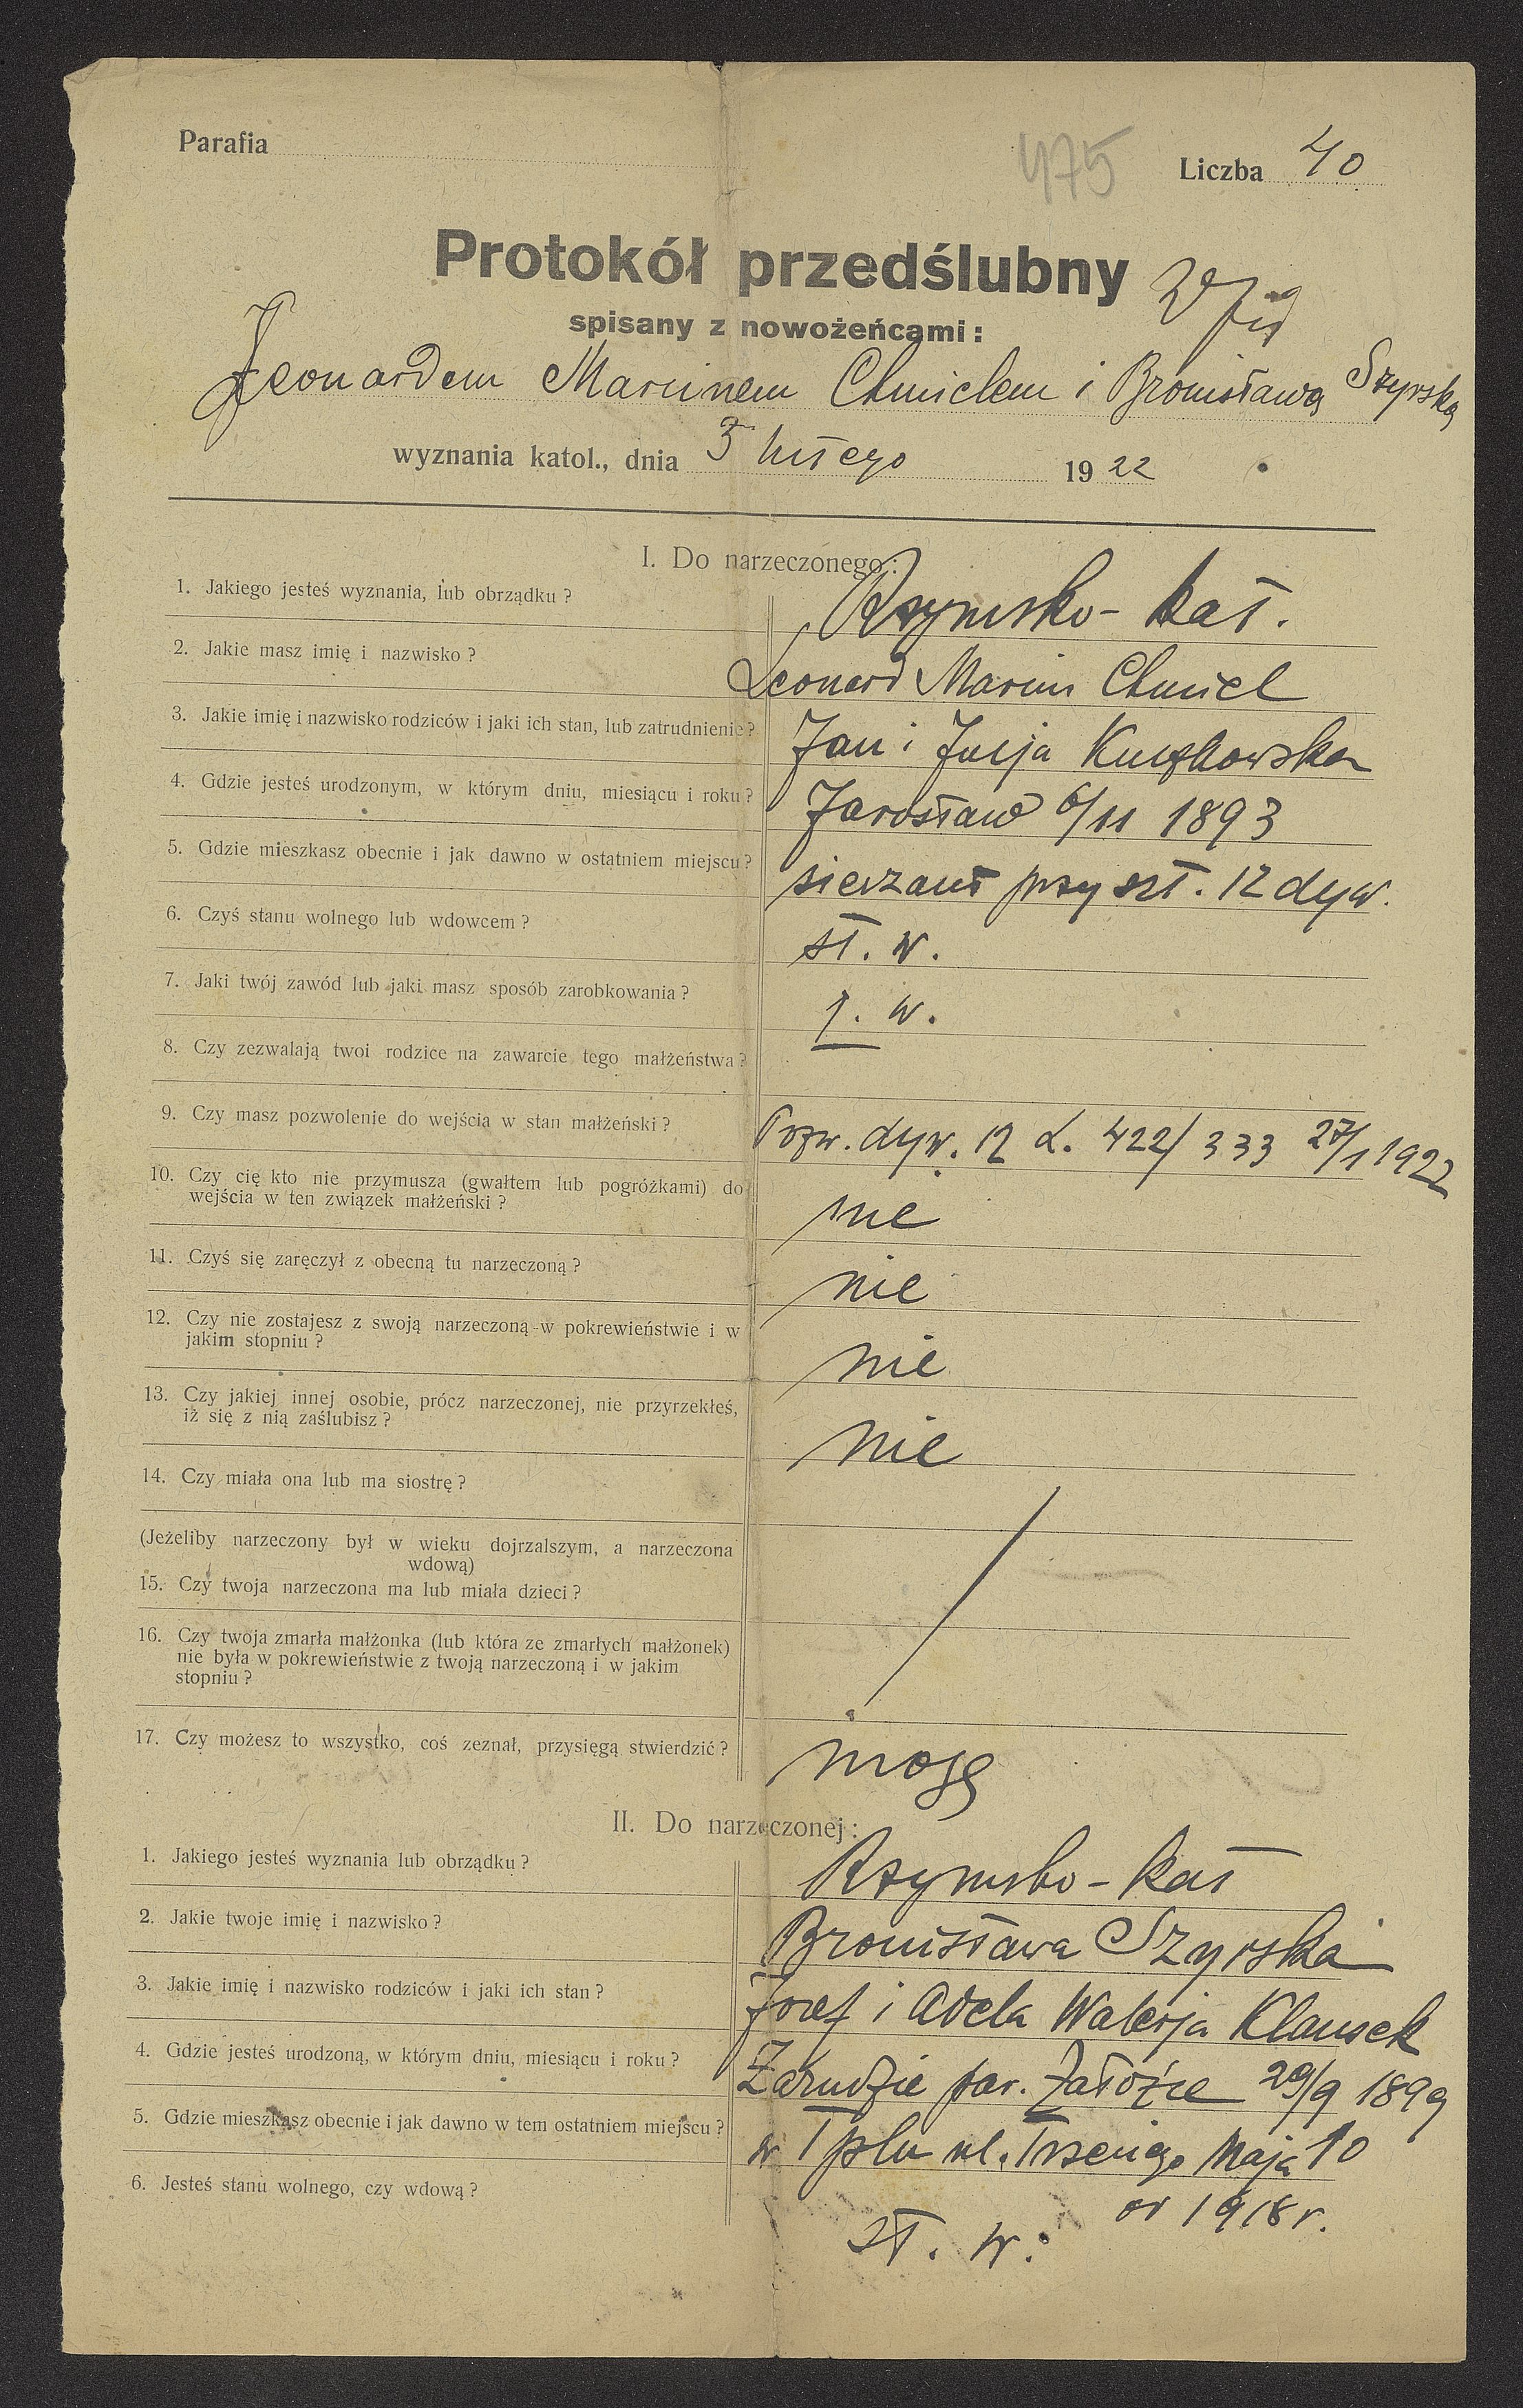 Parafia
475
Liczba 40
Protokół przedślubny
spisany z nowożeńcami:
Leonardem Marcinem Chmielem i Bronisławą Szyrską
wyznania katol., dnia 3 lutego 1922
I. Do narzeczonego:
1. Jakiego jesteś wyznania, lub obrządku? Rzymsko-kat.
2. Jakie masz imię i nazwisko? Leonard Marcin Chmiel
3. Jakie imię i nazwisko rodziców i jaki ich stan, lub zatrudnienie? Jan i Julja
4. Gdzie jesteś urodzonym, w którym dniu, miesiącu i roku? Jarosław 6/11 1893
5. Gdzie mieszkasz obecnie i jak dawno w ostatniem miejscu? sierżant przy szt. 12 dyw.
6. Czyś stanu wolnego lub wdowcem? st. w.
7. Jaki twój zawód lub jaki masz sposób zarobkowania? j. w.
8. Czy zezwalają twoi rodzice na zawarcie tego małżeństwa?
9. Czy masz pozwolenie do wejścia w stan małżeński? Pozw. dyw. 12 L. 422/333 27/1 1922
10. Czy cię kto nie przymusza (gwałtem lub pogróżkami) do
wejścia w ten związek małżeński? nie
11. Czyś się zaręczył z obecną tu narzeczoną? nie
12. Czy nie zostajesz z swoją narzeczoną w pokrewieństwie i w
jakim stopniu? nie
13. Czy jakiej innej osobie, prócz narzeczonej, nie przyrzekłeś,
iż się z nią zaślubisz? nie
14. Czy miała ona lub ma siostrę?
(Jeżeliby narzeczony był w wieku dojrzalszym, a narzeczona
wdową)
15. Czy twoja narzeczona ma lub miała dzieci?
16. Czy twoja zmarła małżonka (lub która ze zmarłych małżonek)
nie była w pokrewieństwie z twoją narzeczoną i w jakim
stopniu?
17. Czy możesz to wszystko, coś zeznał, przysięgą stwierdzić? mogę
II. Do narzeczonej:
1. Jakiego jesteś wyznania lub obrządku? Rzymsko-kat
2. Jakie twoje imię i nazwisko? Bronisława Szyrska
3. Jakie imię i nazwisko rodziców i jaki ich stan? Józef i Adela Walerja Klausek
4. Gdzie jesteś urodzoną, w którym dniu, miesiącu i roku? Zarudzie par. Załoźce 29/9 1899
5. Gdzie mieszkasz obecnie i jak dawno w tem ostatniem miejscu? w Tplu ul. Trzeciego Maja 10
od 1918 r.
6. Jesteś stanu wolnego, czy wdową? st. w.